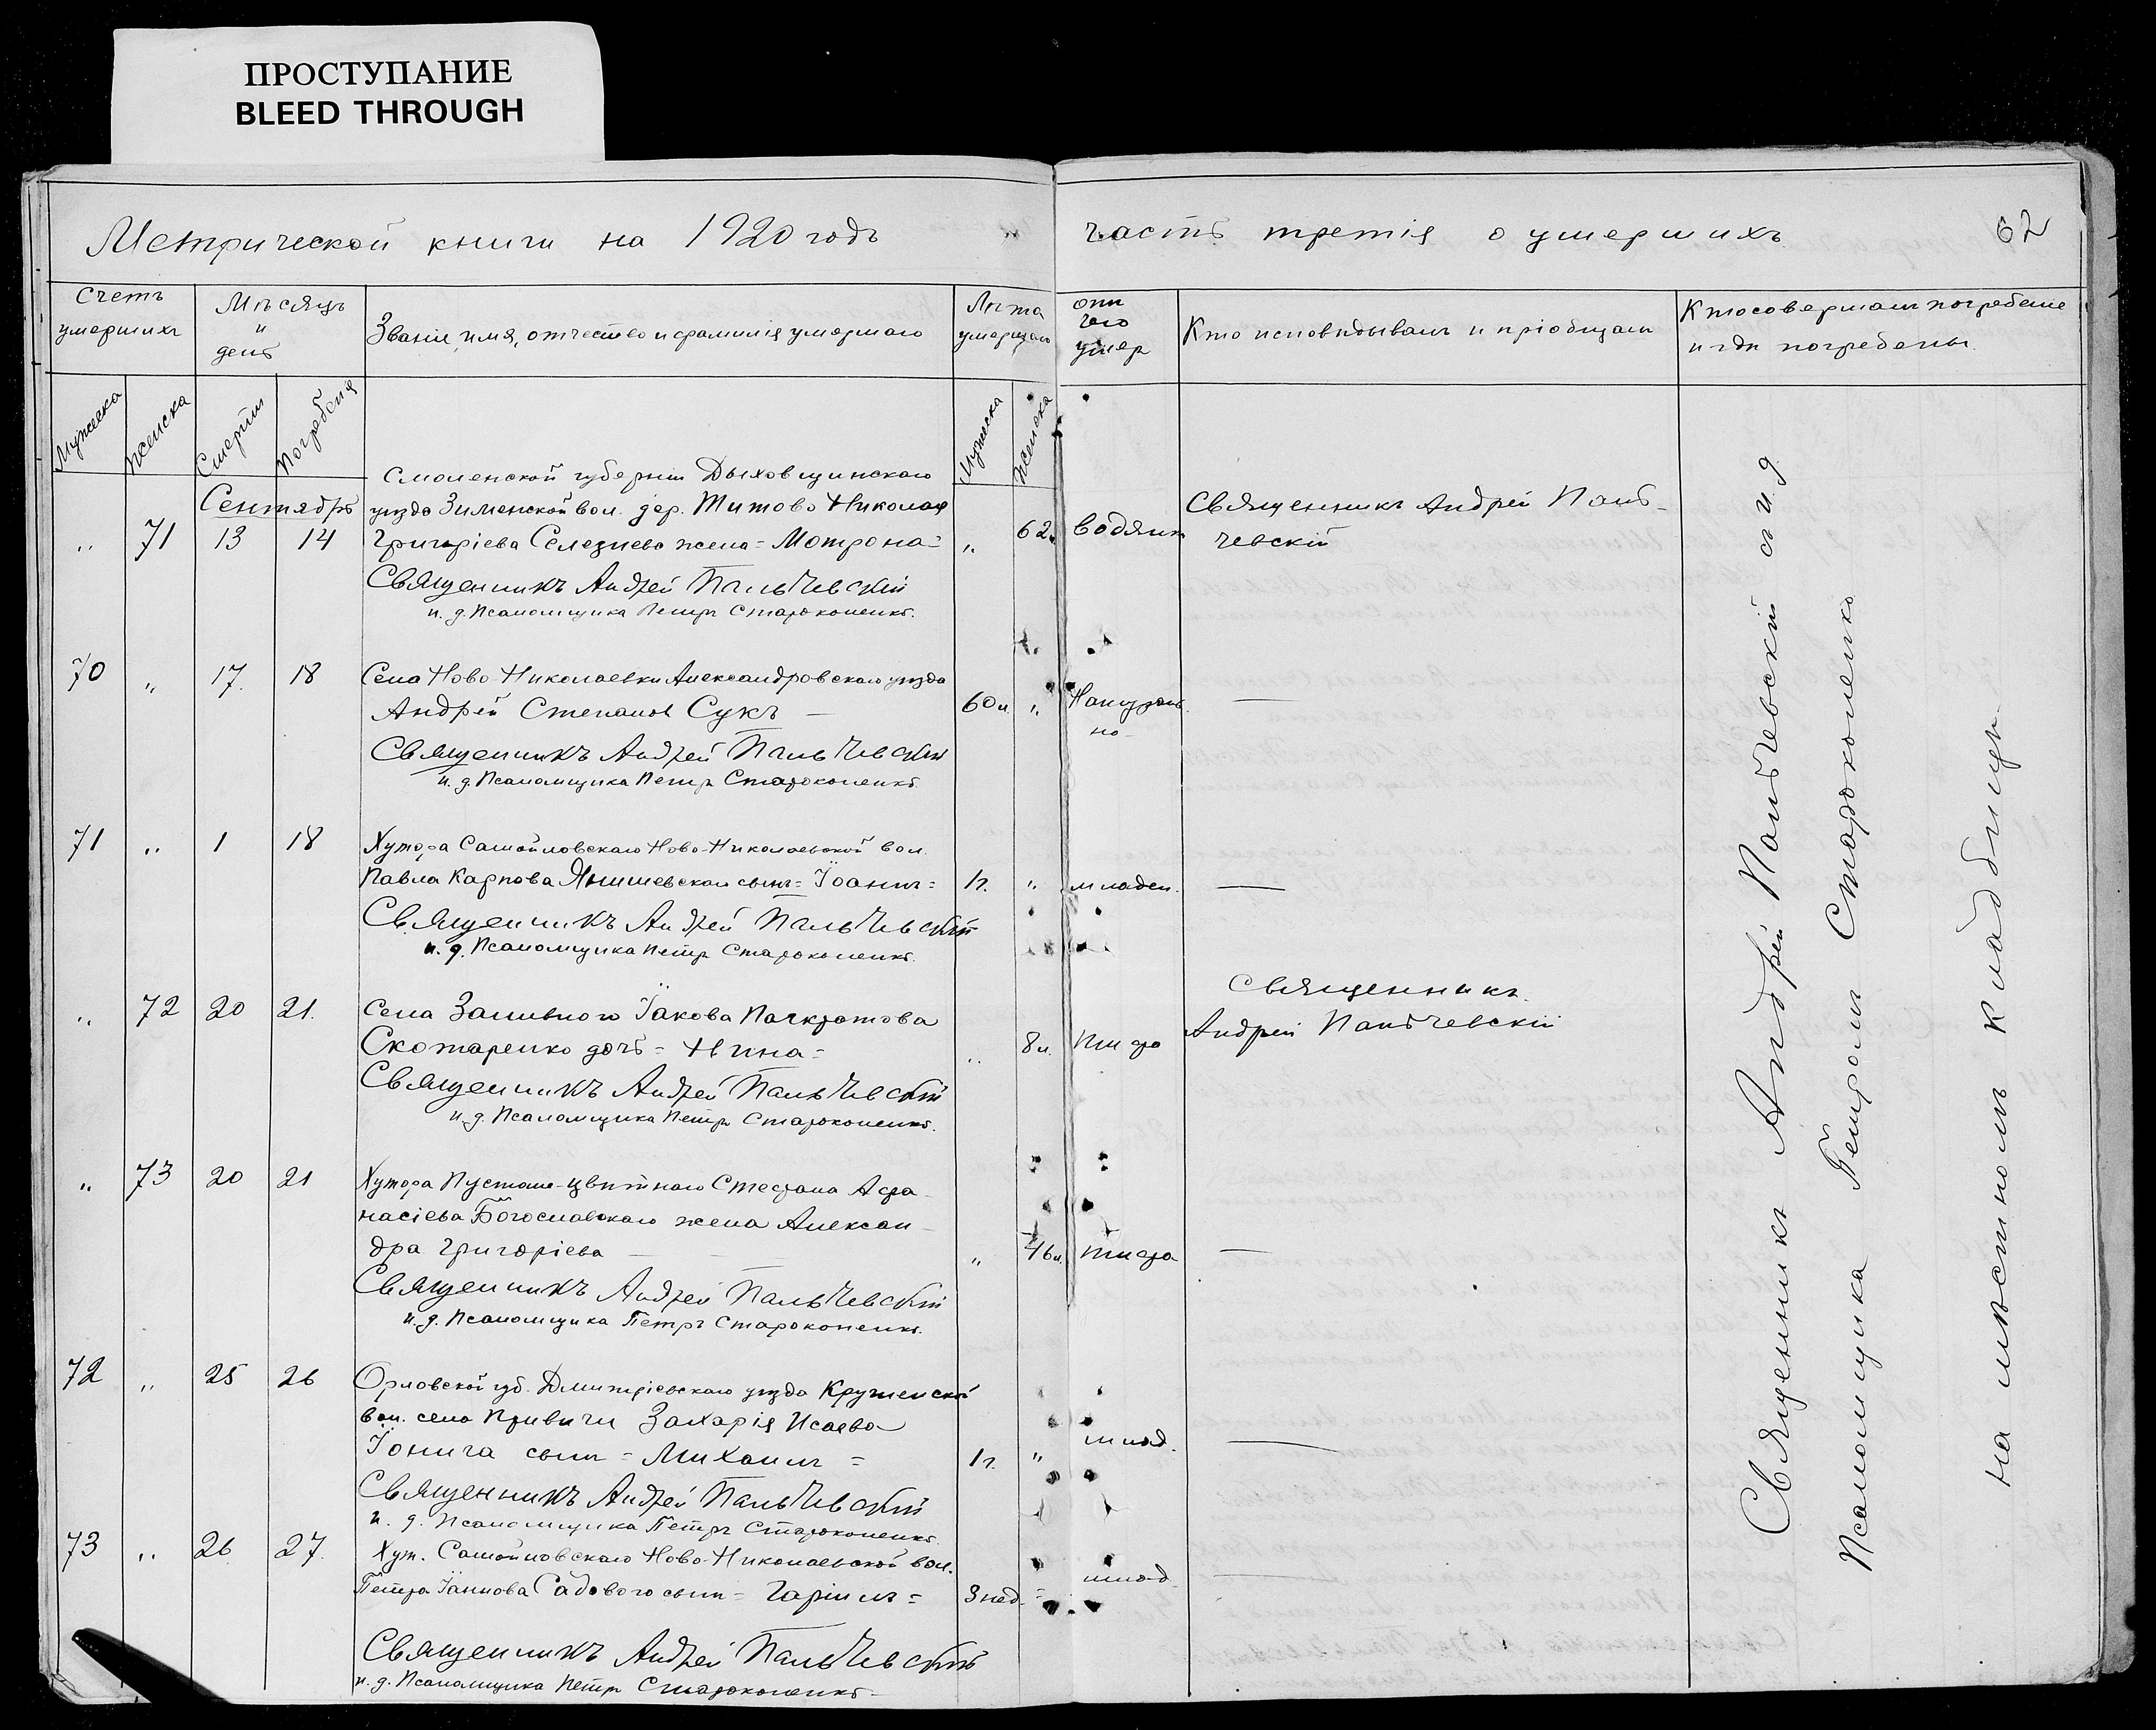 ПРОСТУПАНИЕ
BLEED THROUGH
Метрической книги на 1920 годъ
часть третія о умершихъ
62
Счетъ умершихъ
Мѣсяцъ и день
Званіе, имя, отчество и фамилія умершаго
Лѣта умершаго
отъ чего умер
Кто исповѣдывалъ и пріобщалъ
Кто совершалъ погребеніе
и гдѣ погребены.
Мужеска
женска
Смерти
Погребенія
Мужеска
женска
Смоленской губерніи Дыховщинскаго
Сентябрь
уѣзда Зименской вол. дер. Титово Николая
" 71 13 14 Григоріева Селезнева жена = Мотрона = " 62. водянк
Священникъ Андрей Паль-
чевскій
Священникъ Андрей Пальчевскій
и. д. Псаломщика Петръ Староконенко.
70 " 17. 18 Села Ново-Николаевки Александровскаго уѣзда
Андрей Степанов Сукъ — 60 л. " Натураль
но —
Священникъ Андрей Пальчевскій
и. д. Псаломщика Петръ Староконенко
71 " 1 18 Хутора Самойловскаго Ново-Николаевской вол.
Павла Карпова Янишевскаго сынъ = Іоаннъ = 1 г. " младен. —
Священникъ Андрей Пальчевскій
и. д. Псаломщика Петръ Староконенко.
" 72 20 21. Села Заливного Іакова Панкратова
Скотаренко дочь = Нина = " 8 л. Тифа
Священникъ
Андрей Пальчевскій
Священникъ Андрей Пальчевскій
и. д. Псаломщика Петръ Староконенко.
" 73 20 21 Хутора Пустоше-цвѣтнаго Стефана Афа-
насіева Богославскаго жена Алексан-
дра Григоріева — " 46 л. тифа —
Священникъ Андрей Пальчевскій
и. д. Псаломщика Петръ Староконенко.
72 " 25 26 Орловской губ. Дмитріевскаго уѣзда
вол. села Захарія Исаева
сынъ = Михаилъ = 1 г. " млад. —
Священникъ Андрей Пальчевскій
и. д. Псаломщика Петръ Староконенко
73 " 26 27. Хут. Самойловскаго Ново-Николаевской вол.
Петра Іаннова Садового сынъ = = 3 нед. = млад. —
Священникъ Андрей Пальчевскій
и. д. Псаломщика Петръ Староконенко
Священникъ Андрей Пальчевскій с и. д
Псаломщика Петромъ Староконенко
на мѣстномъ кладбищѣ.